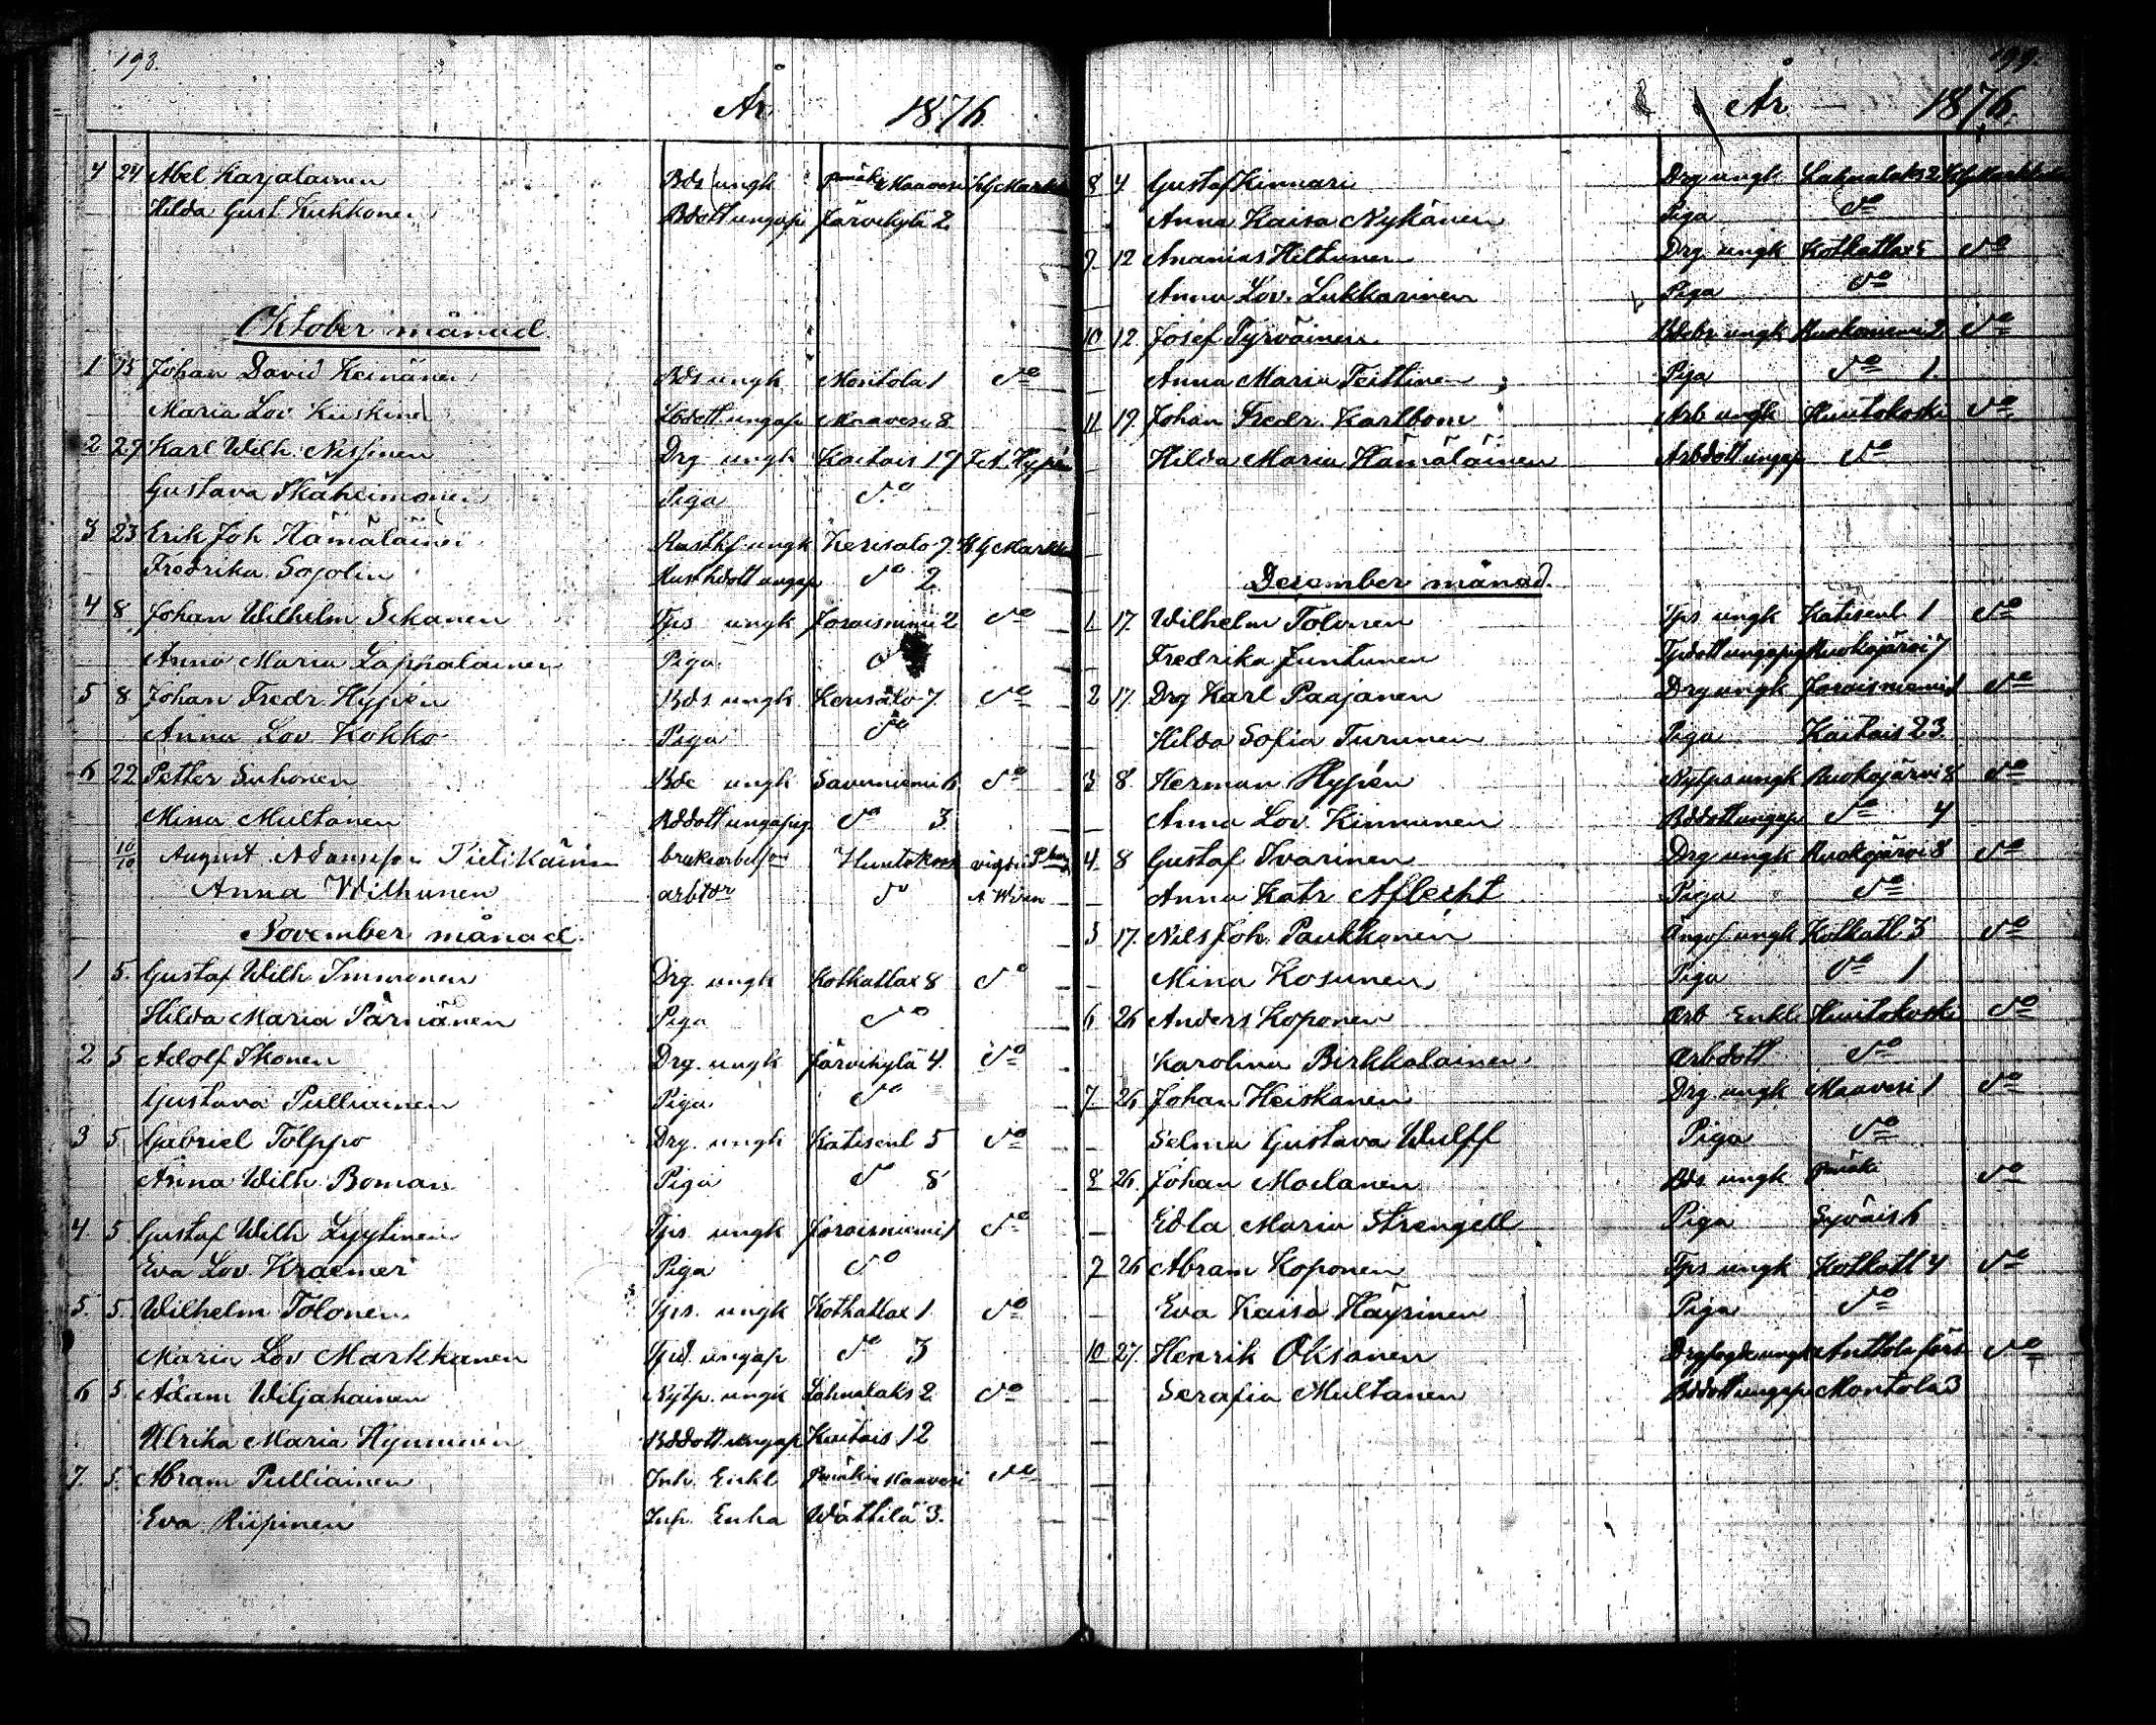 193.
År 1876.
4 24 Abel Karjalainen Bds ungk Pmäki Maavesi
Hilda Gust Kuhkonen Bdott ungap Järvikylä 2
Oktober månad.
1 15 Johan David Keinänen Bds ungk Montola 1 do
Maria Lov Kiiskinen ungap Maavesi 8
2 27 Karl Wilh. Nissinen Drg ungk Kaitais 17
Gustava Pigа do
3 23 Erik Joh Hämäläinen ungk Kerisalo 7
Fredrika Sojolin ungap do 2
4 8 Johan Wilhelm Sikanen Tps ungk Joroisniemi 2 do
Anna Maria Lappalainen Piga
5 8 Johan Fredr Hypén Bds ungk Kerisalo 7 do
Anna Lov. Kokko Piga do
6 22 Petter Suhonen Bde ungk Savuniemi 6 do
Mina Multanen Bddott ungapig do 3
10/10 August Adamsson Pietikäinen Huutokoski
Anna Wilhunen do
November månad.
1 5. Gustaf Wilh Immonen Drg. ungk Kotkatlax 8 do
Hilda Maria Pärnänen Piga do
2 5 Adolf Ikonen Drg. ungk Järvikylä 4. do
Gustava Pulliainen Piga do
3 5 Gabriel Tolppo Drg. ungk Katisenl 5 do
Anna Wilh Boman Piga do 8
4. 5 Gustaf Wilh Lyytinen Tps. ungk Joroisniemi 1 do
Eva Lov. Kraemer Piga do
5. 5. Wilhelm Tolonen Tps. ungk Kotkatlax 1. do
Maria Lov Markkanen Tpd. ungap do 3
6 5. Adam Wiljakainen Nytp. ungk Lahnalaks 2 do
Ulrika Maria Hynninen Bddott ungap Kaitais 12
7. 5. Abram Pulliainen Inh. Enkl Pmäki Maavesi do
Eva Riipinen Inh. Enka Wättilä 3.
199.
År — 1876.
8 4 Gustaf Kinnari Drg ungk Lahnalaks 2
Anna Kaisa Nykänen Piga do
9 12 Ananias Hiltunen Drg ungk Kotkatlax 5 do
Anna Lov. Lukkarinen Piga do
10 12. Josef Tyrväinen ungk Ruokoniemi 2 do
Anna Maria Teittinen Piga do 1.
11 19. Johan Fredr. Karlbom Arb ungk Huutokoski do
Hilda Maria Hämäläinen Arbdott ungap do
December månad.
1 17. Wilhelm Tolonen Tps ungk Katisenl. 1 do
Fredrika Juntunen Ruokojärvi 7
2 17. Drg Karl Paajanen Drg ungk Joroisniemi 1 do
Hilda Sofia Turunen Piga Kaitais 23
3 8. Herman Hypén Nytps ungk Ruokojärvi 8 do
Anna Lov. Kinnunen Bddott ungap do 4
4. 8 Gustaf Ivarinen Drg ungk Ruokojärvi 8 do
Anna Katr Aflecht Piga do
5 17. Nils Joh. Paukkonen ungk Kotkatl 3 do
Mina Kosunen Piga do 1
6 26 Anders Koponen Arb Enkl. Huutokoski do
Karolina Birkkalainen Arbdott do
7 26 Johan Heiskanen Drg ungk Maavesi 1 do
Selma Gustava Wulff Piga do
8 26. Johan Moilanen Bds ungk Pmäki do
Edla Maria Strengell Piga Syväis 6
9 26 Abram Koponen Tps ungk Kotkatl 4 do
Eva Kaisa Häyrinen Piga do
10 27. Henrik Oksanen Anttola förs do
Serafia Multanen Bddott ungap Montola 3